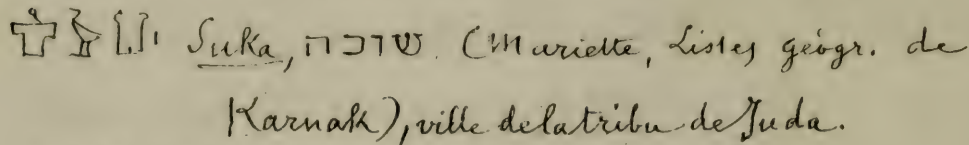 Suka, שוכה. (Mariette, Listes géogr. de
Karnak), ville de la tribu de Juda.